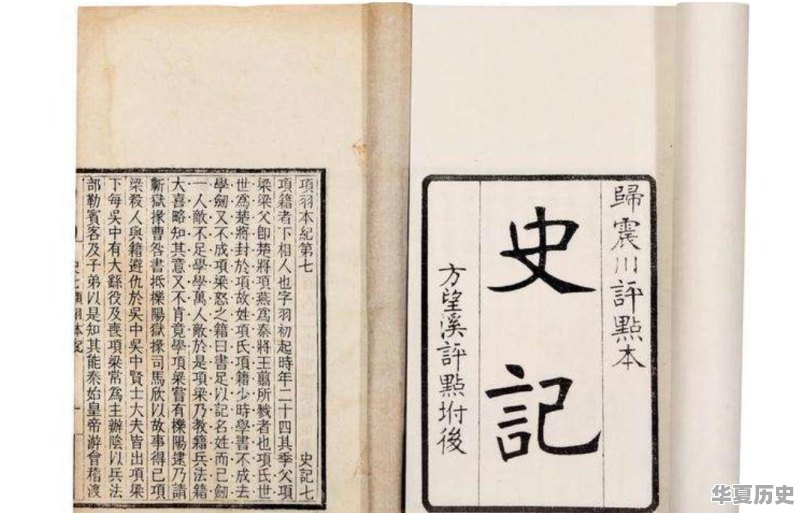 歸震川評點本
史記
方望溪評點坿後
項羽本紀第七 史記七
項籍者下相人也字羽初起時年二十四其季父項
梁梁父卽楚將項燕爲秦將王翦所戮者也項氏世
世爲楚將封於項故姓項氏項籍少時學書不成去
學劍又不成項梁怒之籍曰書足以記名姓而已劍
一人敵不足學學萬人敵於是項梁乃教籍兵法籍
大喜略知其意又不肯竟學項梁嘗有櫟陽逮乃請
蘄獄掾曹咎書抵櫟陽獄掾司馬欣以故事得已項
梁殺人與籍避仇於吳中吳中賢士大夫皆出項梁
下每吳中有大繇役及喪項梁常爲主辦陰以兵法
部勒賓客及子弟以是知其能秦始皇帝游會稽渡
史七項羽本紀 一
华夏历史